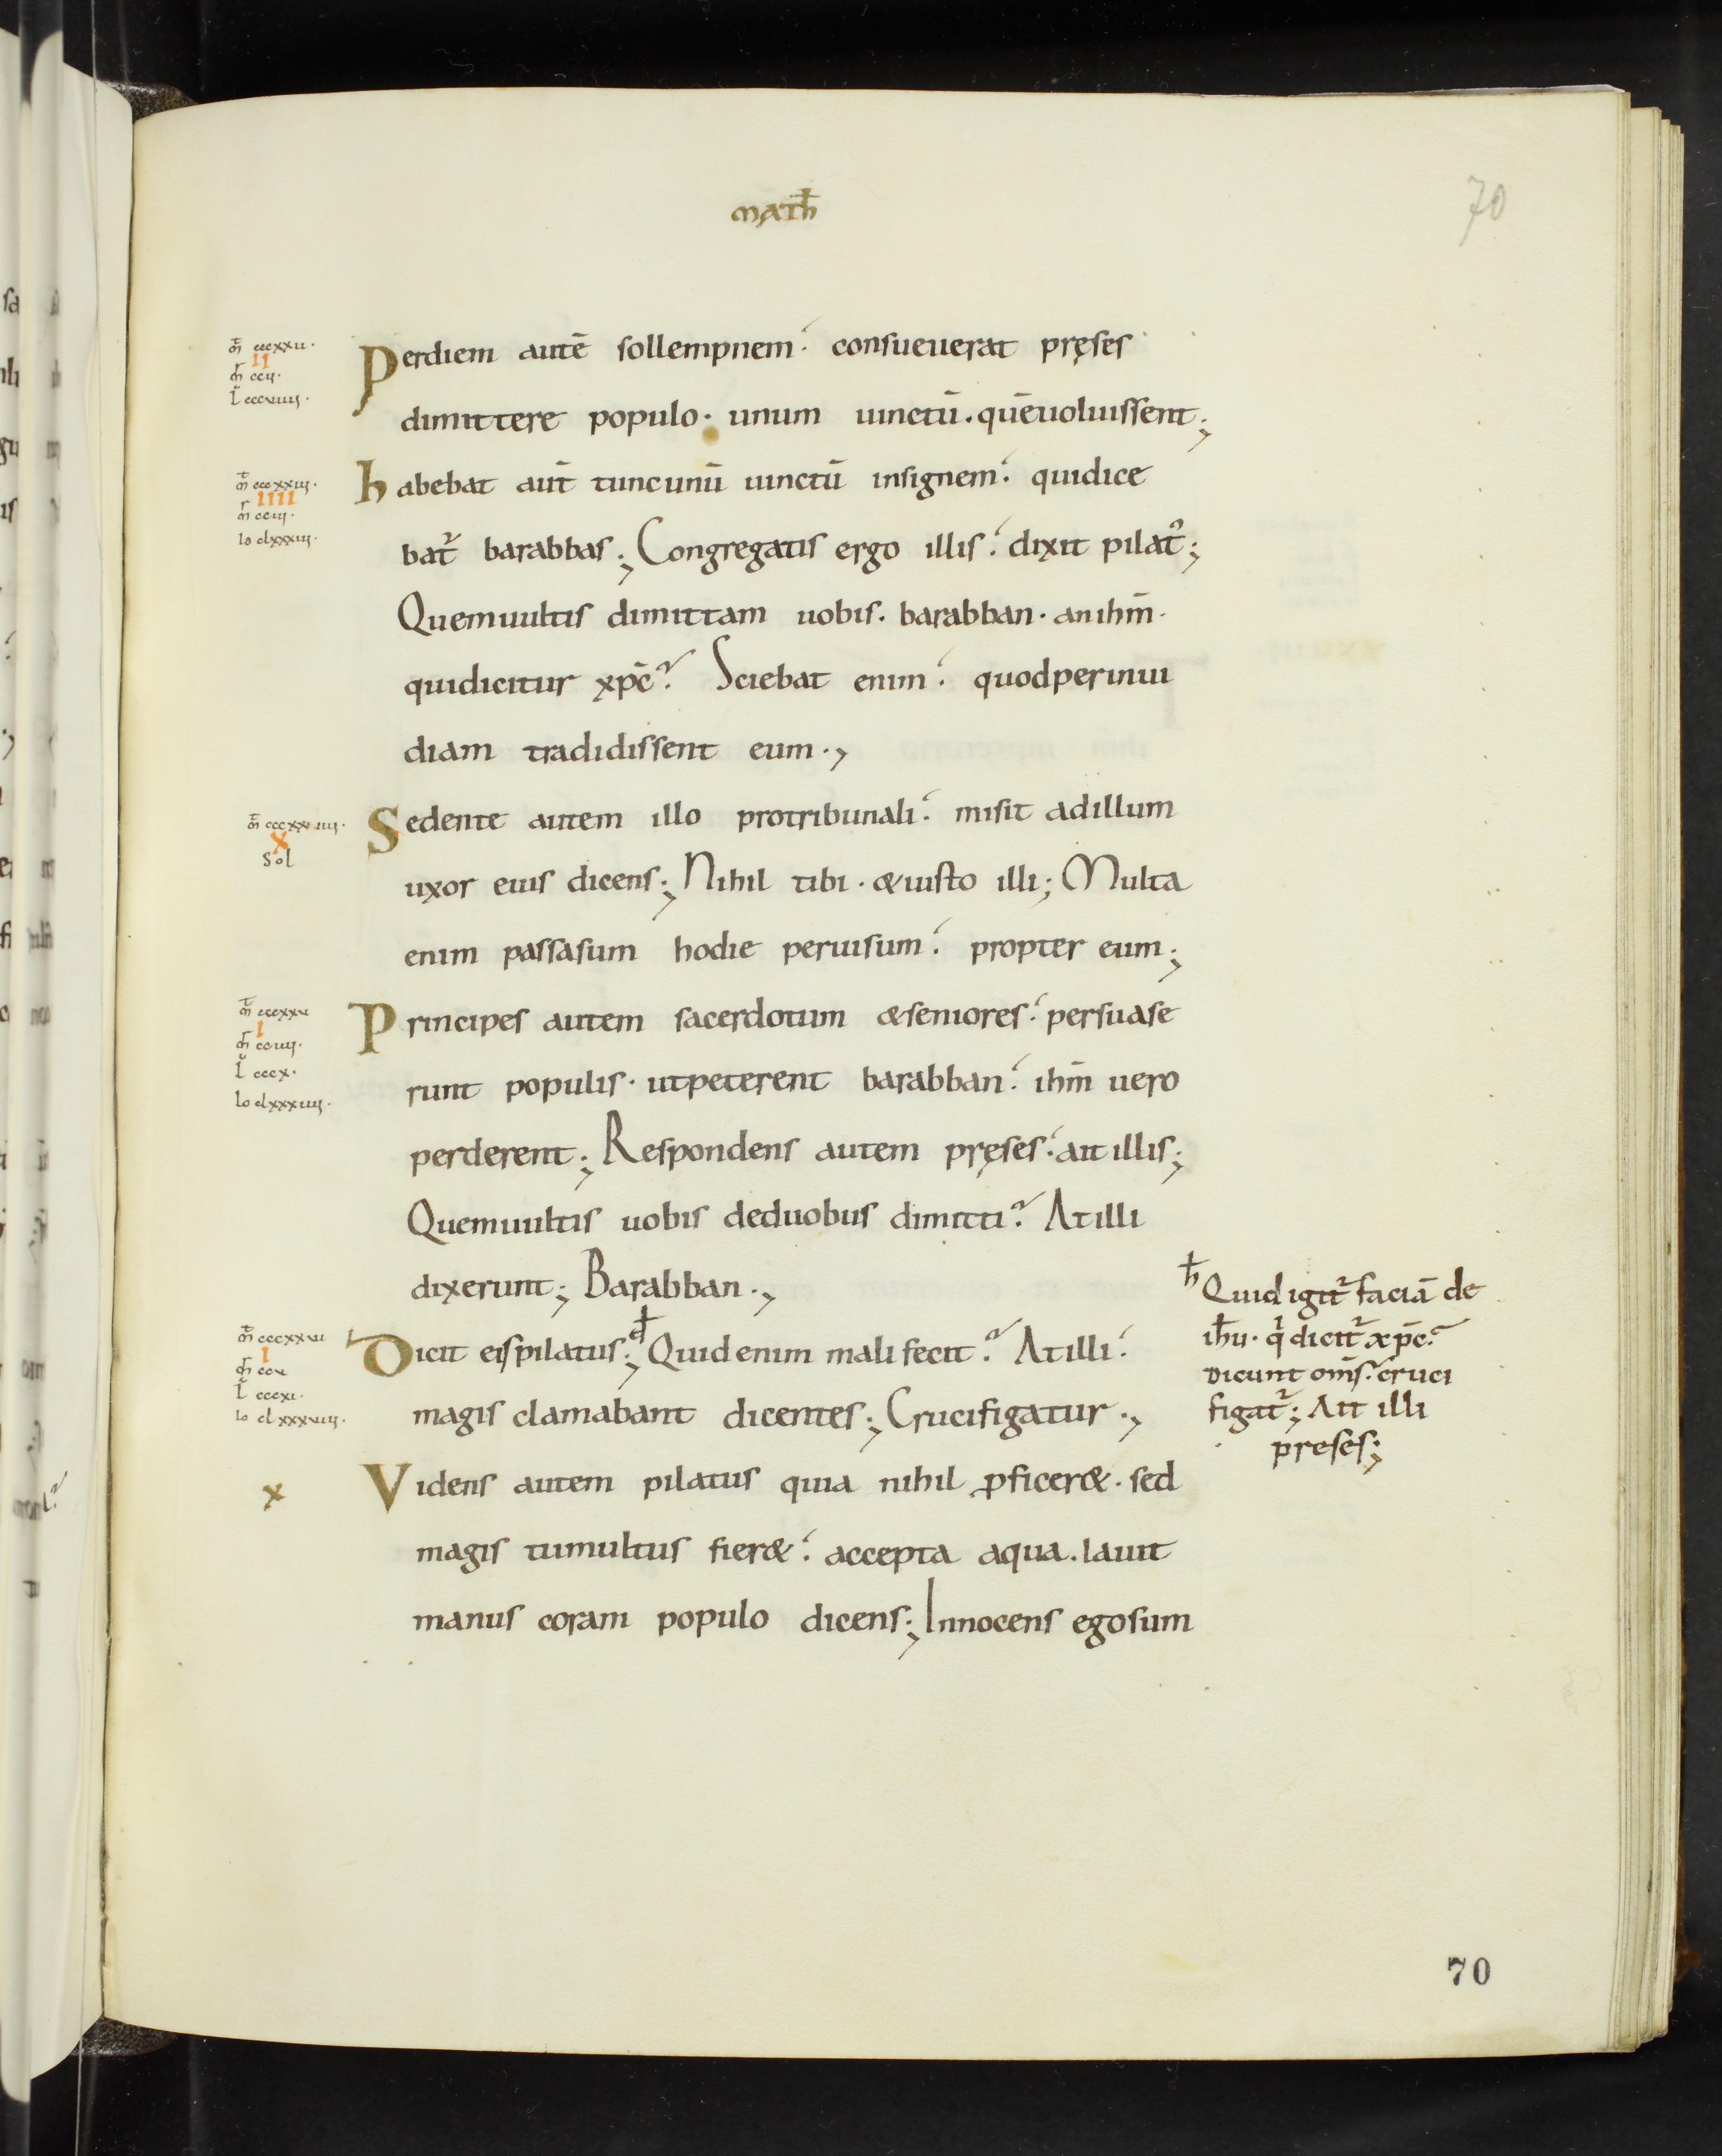 math̄
70
m̄ cccxxii.
II
m̄r ccii.
l̄ cccviiii.
Perdiem autē sollempnem. consueuerat pręses
dimittere populo. unum uinctū. quēuoluissent;
m̄ cccxxiii.
IIII
m̄r cciii.
Io clxxxiii.
habebat aūt tuncunū uinctū insignem. quidice
bat᷑ barabbas; Congregatis ergo illis. dixit pilatꝰ;
Quemuultis dimittam uobis. barabban. anihm̄.
quidicitur xpc̄? Sciebat enim. quodperinui
diam tradidissent eum.,
m̄ cccxxiiii.
X
sol
Sedente autem illo protribunali. misit adillum
uxor eius dicens; Nihil tibi. &iusto illi; Multa
enim passasum hodie peruisum. propter eum;
m̄ cccxxv
I
m̄r cciiii.
l̄ cccx.
Io clxxxiiii.
Principes autem sacerdotum &seniores. persuase
runt populis. utpeterent barabban. ihm̄ uero
perderent; Respondens autem pręses. ait illis;
Quemuultis uobis deduobus dimitti? Atilli
dixerunt; Barabban.,
m̄ cccxxvi
I
m̄r ccv
l̄ cccxi.
Io clxxxviii.
Dicit eispilatus; đ Quidenim mali fecit? Atilli.
magis clamabant dicentes; Crucifigatur.,
ħ Quid igit᷑ faciā de
ihu̅. qⁱ dicit᷑ xpc̄?
Dicunt om̄s. cruci
figat᷑; Ait illi
preses;
x
Videns autem pilatus quia nihil ꝓficer&. sed
magis tumultus fier&. accepta aqua. lauit
manus coram populo dicens; Innocens egosum
70